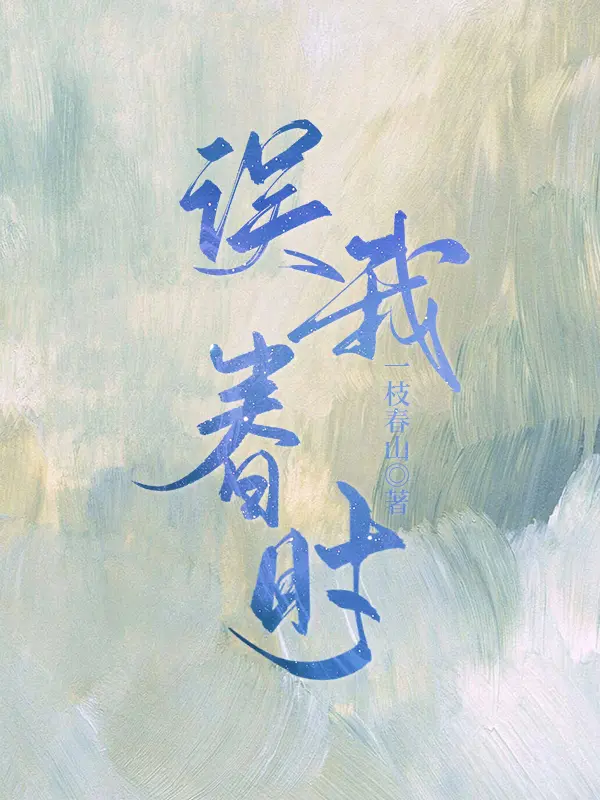 误我春时
一枝春山◎著